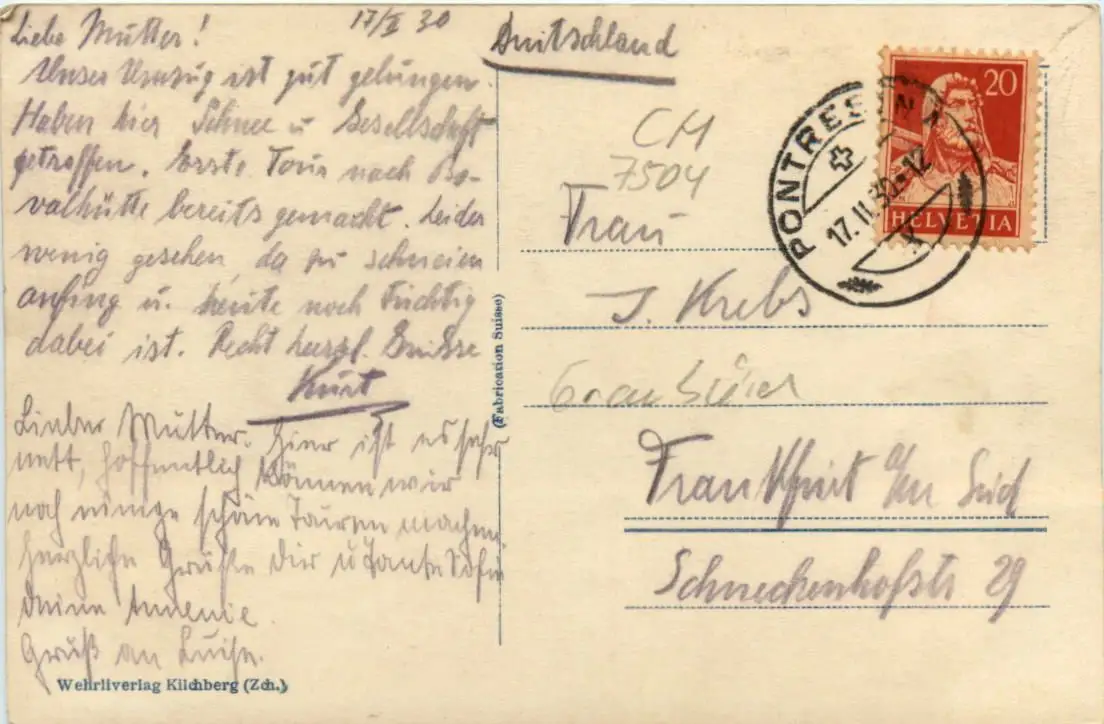 17/II 30
Liebe Mutter!
Unser Umzug ist gut gelungen.
Haben hier Schnee u Gesellschaft
getroffen. Erste Tour nach Bo-
valhütte bereits gemacht. Leider
wenig gesehen, da zu schneien
anfing u. heute noch tüchtig
dabei ist. Recht herzl. Grüsse
Kurt
Liebe Mutter. Hier ist es sehr
nett, hoffentlich können wir
noch einige schöne Touren machen.
Herzliche Grüße Dir u Tante Sofie
Deine
Gruß an Luise.
Wehrliverlag Kilchberg (Zch.)
(Fabrication Suisse)
Deutschland
CH
7504
Frau
J. Krebs
Graubünden
Frankfurt a/m Süd
Schneckenhofstr 29
20
HELVETIA
PONTRESINA
17.II.30.-12